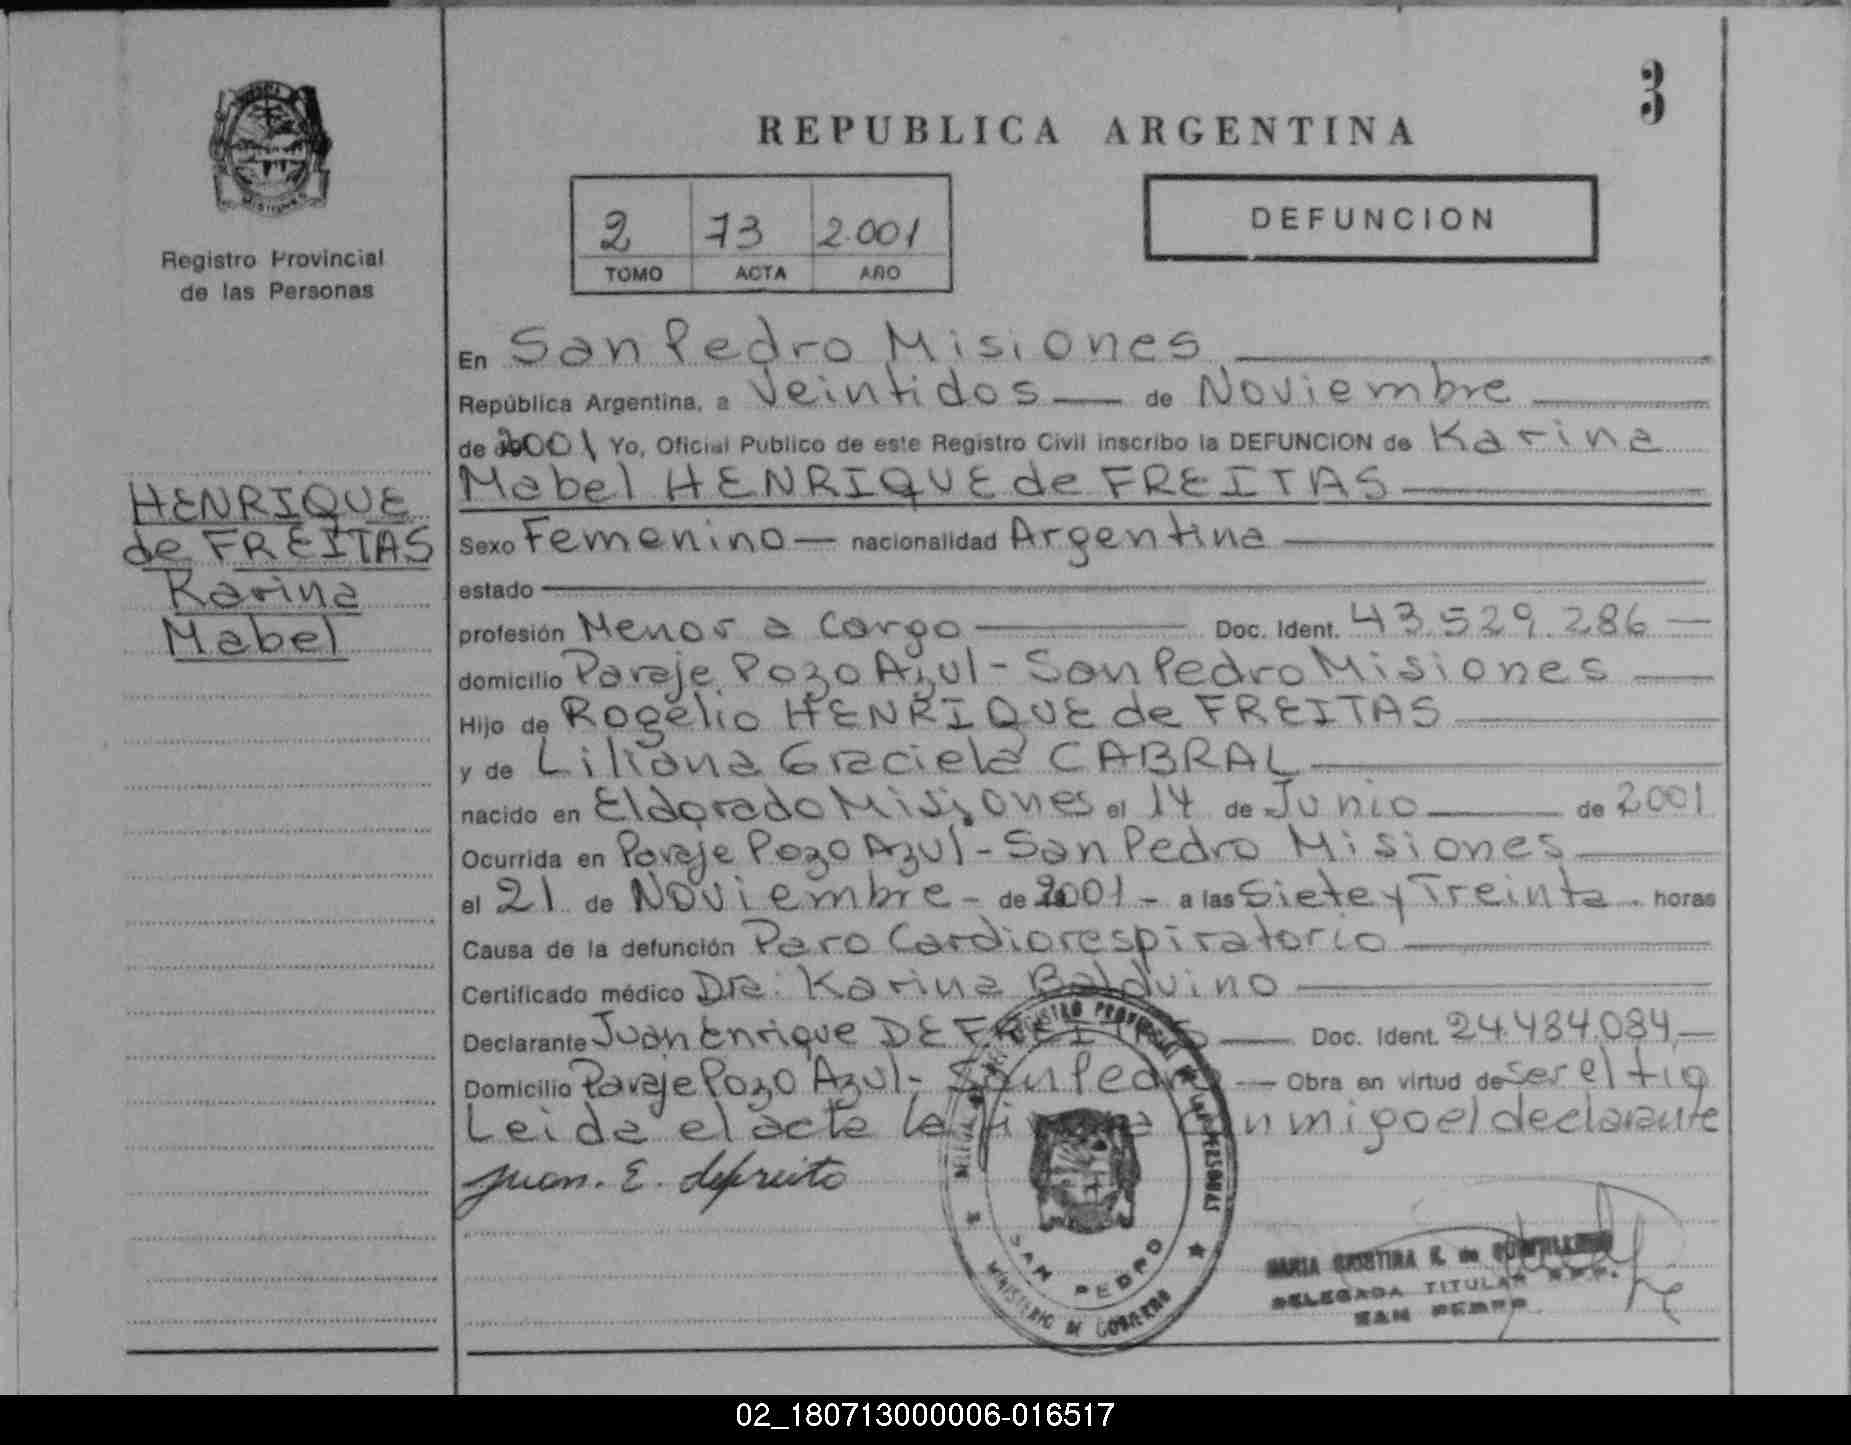 3
REPUBLICA ARGENTINA
DEFUNCION
2 73 2.001
TOMO ACTA AÑO
MISIONES
Registro Provincial
de las Personas
HENRIQUE
de FREITAS
Karina
Mabel
En San Pedro Misiones
República Argentina, a Veintidos — de Noviembre
de 2001 Yo, Oficial Publico de este Registro Civil inscribo la DEFUNCION de Karina
Mabel HENRIQUE de FREITAS
Sexo Femenino — nacionalidad Argentina
estado
profesión Menor a cargo Doc. Ident. 43.529.286 —
domicilio Paraje Pozo Azul - San Pedro Misiones
Hijo de Rogelio HENRIQUE de FREITAS
y de Liliana Graciela CABRAL
nacido en Eldorado Misiones el 14 de Junio de 2001
Ocurrida en Paraje Pozo Azul - San Pedro Misiones
el 21 de Noviembre - de 2001 - a las Siete y Treinta . horas
Causa de la defunción Paro Cardiorespiratorio
Certificado médico Dra. Karina Balduino
Declarante Juan Enrique DE FREITAS — Doc. Ident. 24.484.084 —
Domicilio Paraje Pozo Azul - San Pedro — Obra en virtud de ser el tio
Leida el acta la firma conmigo el declarante
Juan. E. defreito
REGISTRO PROVINCIAL DE LAS PERSONAS
SAN PEDRO
MINISTERIO DE GOBIERNO
MARIA CRISTINA K. de
DELEGADA TITULAR R.P.P.
SAN PEDRO
02_180713000006-016517